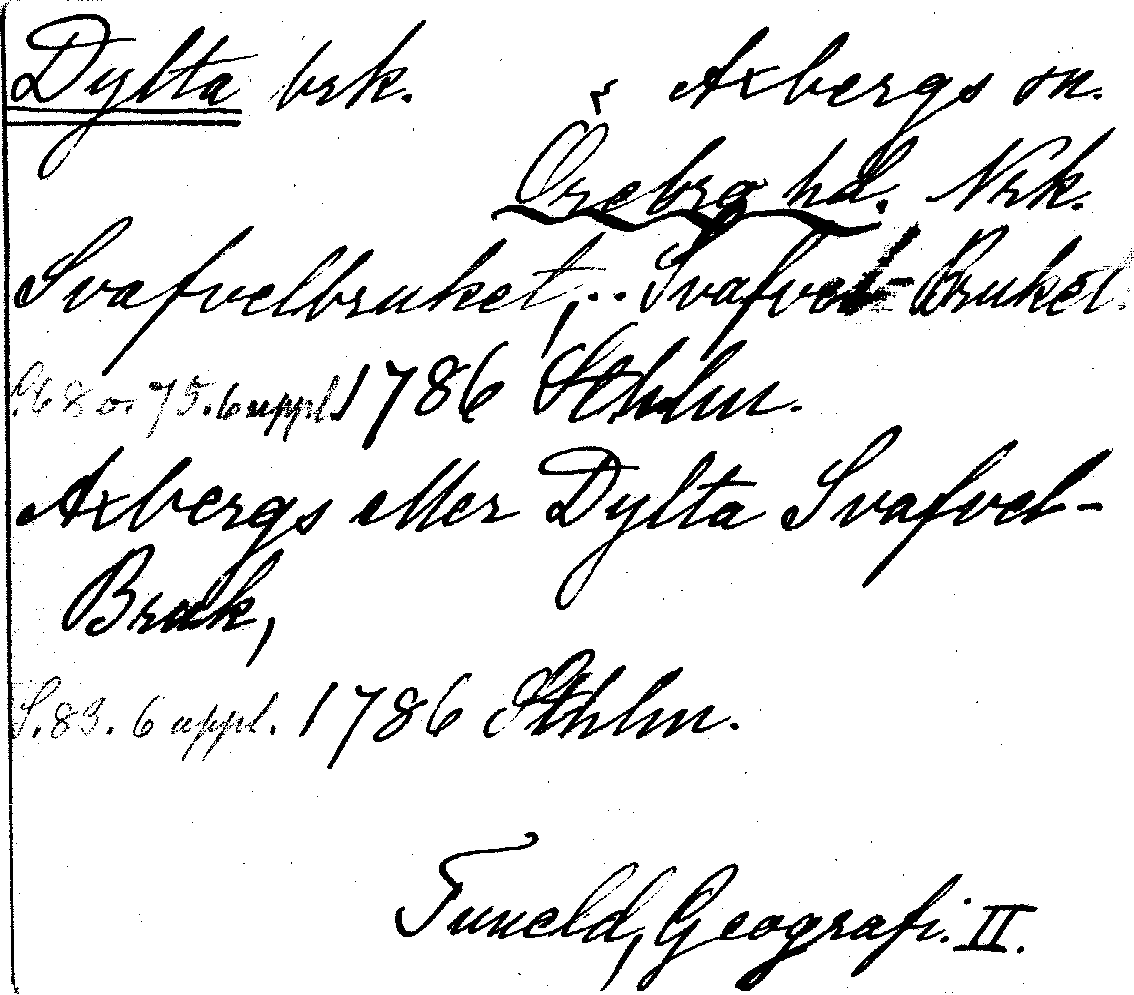 Dylta brk. Axbergs sn.
Örebro hd. Nrk.
Svafvelbruket, .. Svafvel-Bruket.
S. 68 o. 75. 6 uppl. 1786 Sthlm.
Axbergs eller Dylta Svafvel-
Bruk,
S. 83. 6 uppl. 1786 Sthlm.
Tuneld, Geografi. II.